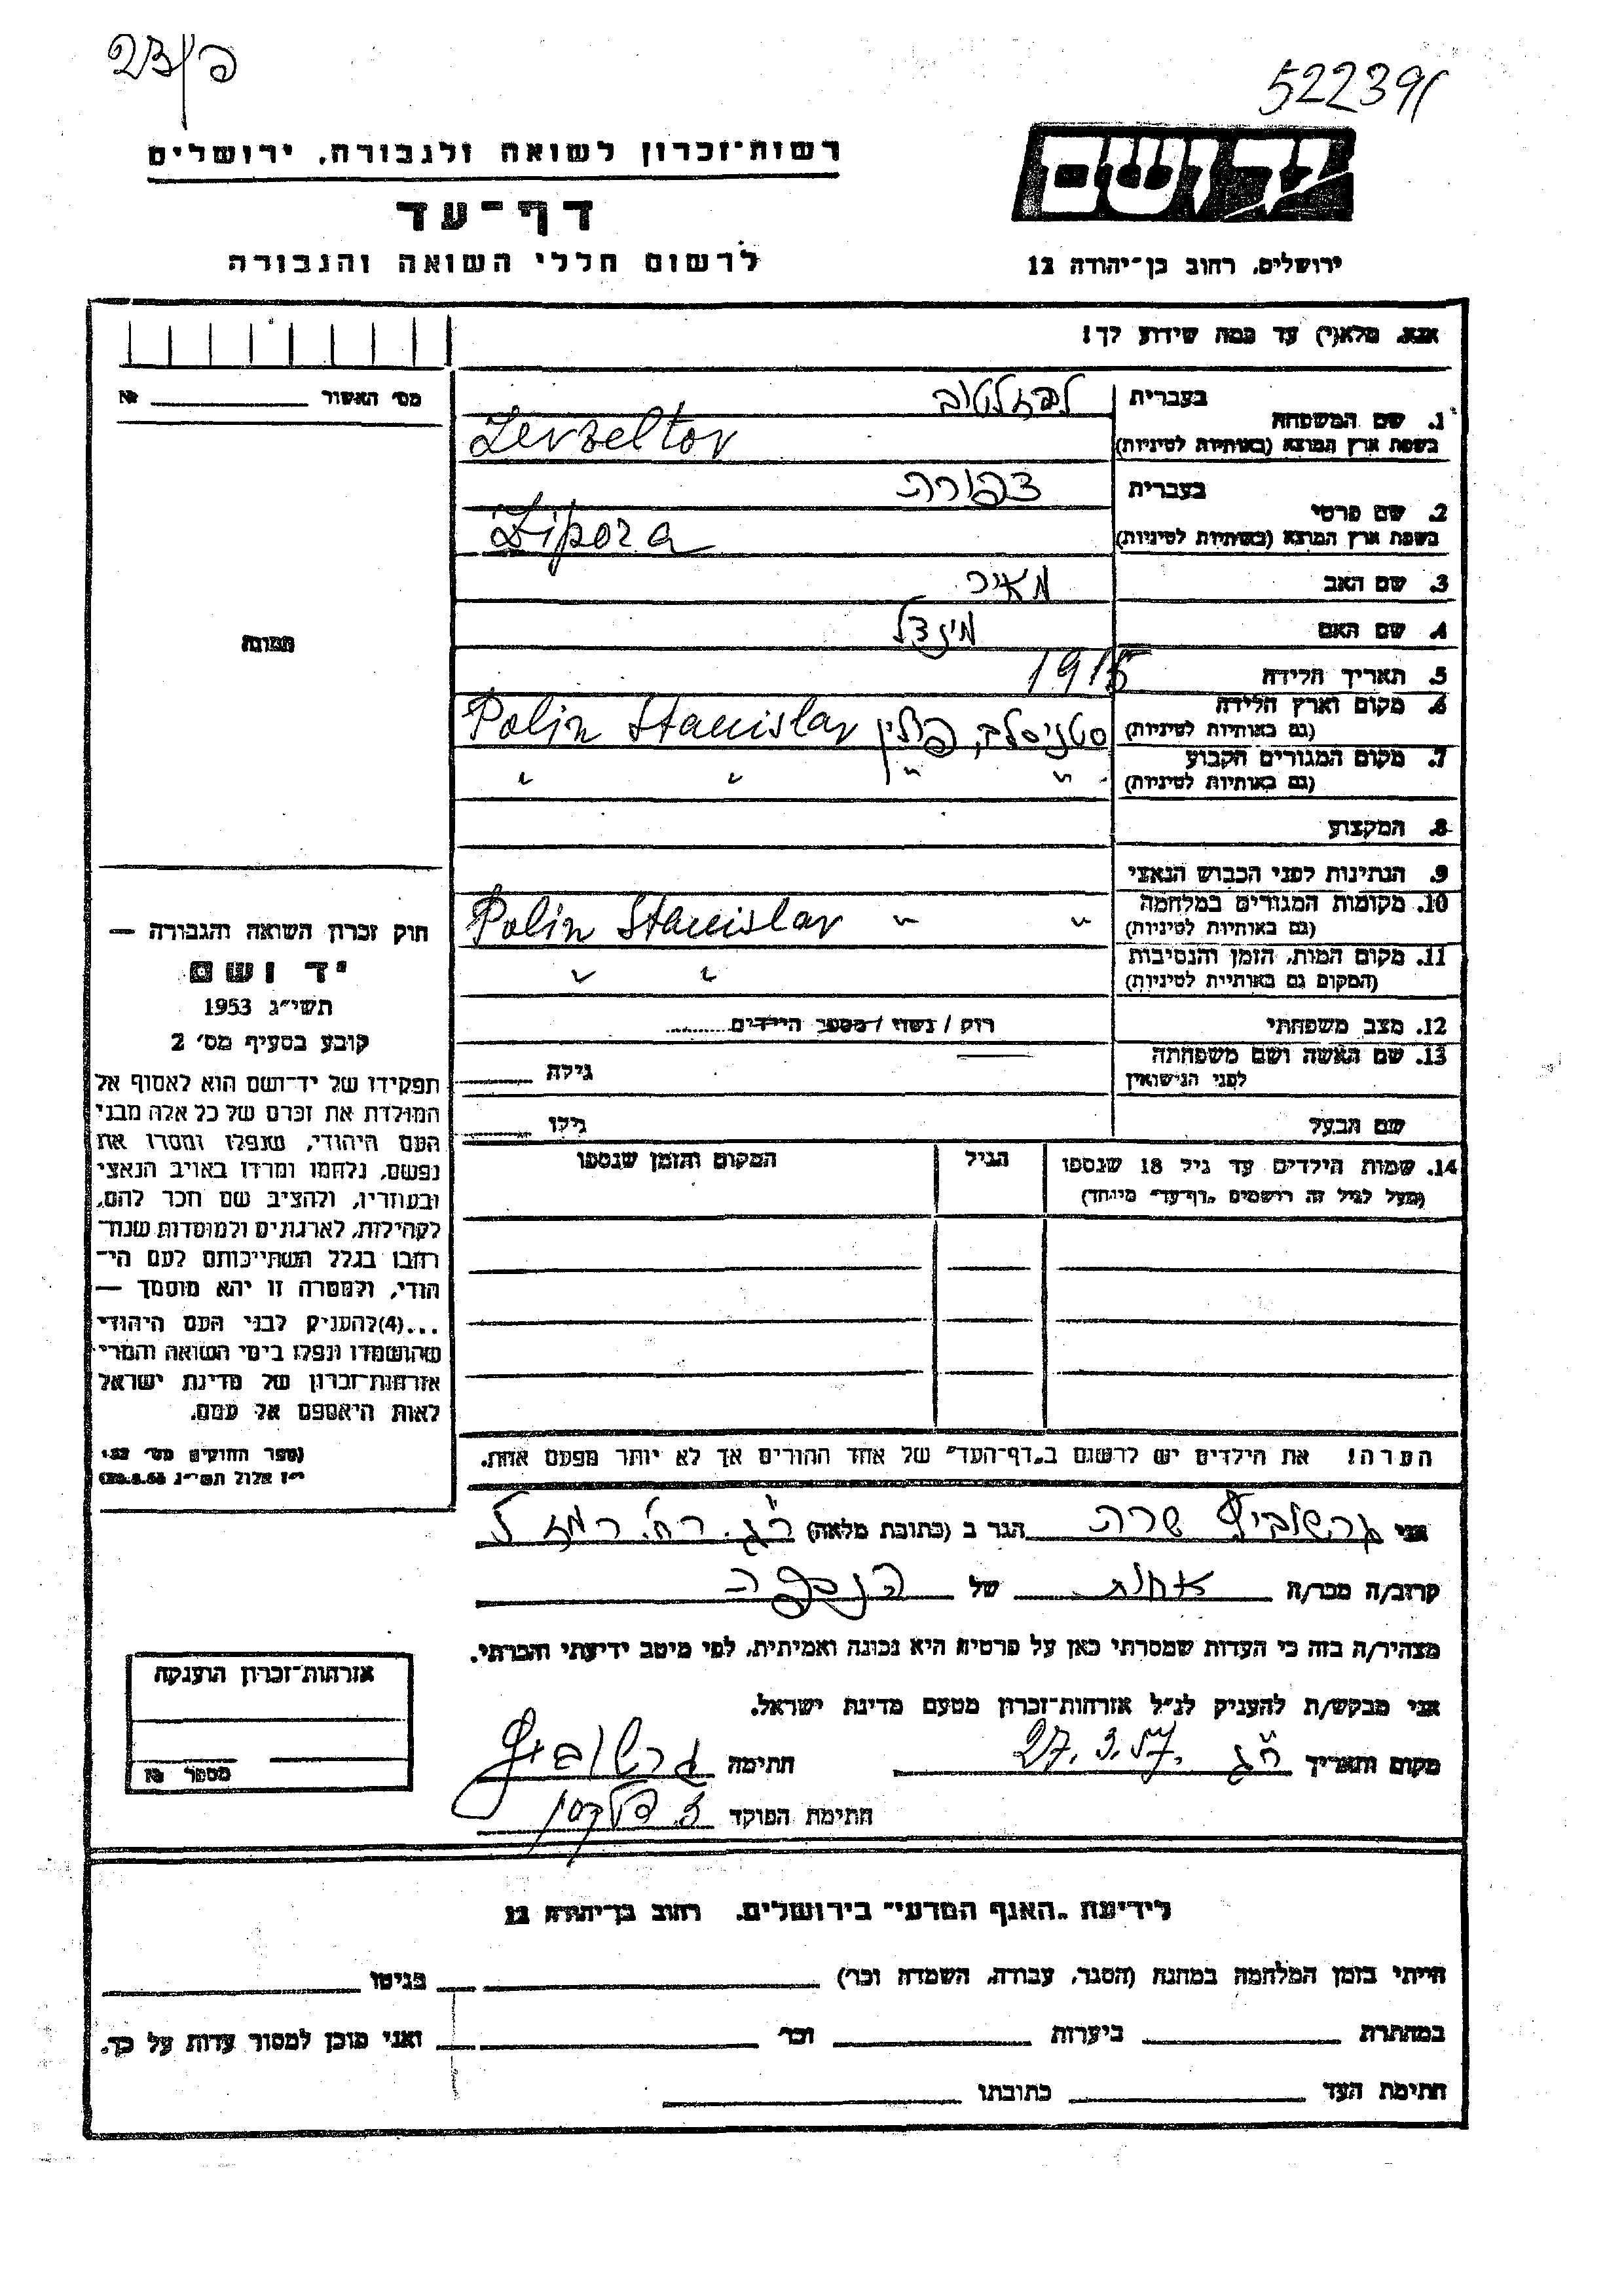 52239
רשות־זכרון לשואה ולגבורה, ירושלים
דף־עד
לרשום חללי השואה והגבורה
יד ושם
ירושלים, רחוב בן־יהודה 12
אנא, מלא(י) עד כמה שידוע לך!
מס׳ האשור № 
1. שם המשפחה בעברית
בשפת ארץ המוצא (באותיות לטיניות)
Zerzeltov
2. שם פרטי בעברית צפורה
בשפת ארץ המוצא (באותיות לטיניות) Zipora
3. שם האב מאיר
4. שם האם מינדל
5. תאריך הלידה 1915
6. מקום וארץ הלידה (גם באותיות לטיניות) סטניסלב, פולין Polin Stanislav
7. מקום המגורים הקבוע (גם באותיות לטיניות) " " " "
8. המקצוע
9. הנתינות לפני הכבוש הנאצי
10. מקומות המגורים במלחמה (גם באותיות לטיניות) " " Polin Stanislav
11. מקום המות, הזמן והנסיבות (המקום גם באותיות לטיניות) " "
12. מצב משפחתי רווק / נשוי / מספר הילדים
13. שם האשה ושם משפחתה לפני הנישואין גילה
שם הבעל גילו
14. שמות הילדים עד גיל 18 שנספו הגיל המקום והזמן שנספו
(מעל לגיל זה רושמים „דף־עד״ מיוחד)
הערה! את הילדים יש לרשום ב„דף־העד״ של אחד ההורים אך לא יותר מפעם אחת.
תמונה
חוק זכרון השואה והגבורה —
יד ושם
תשי״ג 1953
קובע בסעיף מס׳ 2
תפקידו של יד־ושם הוא לאסוף אל
המולדת את זכרם של כל אלה מבני
העם היהודי, שנפלו ומסרו את
נפשם, נלחמו ומרדו באויב הנאצי
ובעוזריו, ולהציב שם וזכר להם,
לקהילות, לארגונים ולמוסדות שנח־
רבו בגלל השתייכותם לעם הי־
הודי, ולמטרה זו יהא מוסמך —
...(4)להעניק לבני העם היהודי
שהושמדו ונפלו בימי השואה והמרי
אזרחות־זכרון של מדינת ישראל
לאות היאספם אל עמם.
(ספר החוקים מס׳ 132
י״ז אלול תשי״ג 28.8.53)
אני גרשוביץ שרה הגר ב (כתובת מלאה)
קרוב/ה מכר/ה אחות של הנספה
מצהיר/ה בזה כי העדות שמסרתי כאן על פרטיה היא נכונה ואמיתית, לפי מיטב ידיעתי והכרתי.
אני מבקש/ת להעניק לנ״ל אזרחות־זכרון מטעם מדינת ישראל.
מקום ותאריך 27.3.57 חתימה גרשוביץ
חתימת הפוקד
אזרחות־זכרון הוענקה
מספר №
לידיעת „האגף המדעי״ בירושלים. רחוב בן־יהודה 12
הייתי בזמן המלחמה במחנה (הסגר, עבודה, השמדה וכר׳) בגיטו
במחתרת ביערות וכר׳ ואני מוכן למסור עדות על כך.
חתימת העד כתובתו